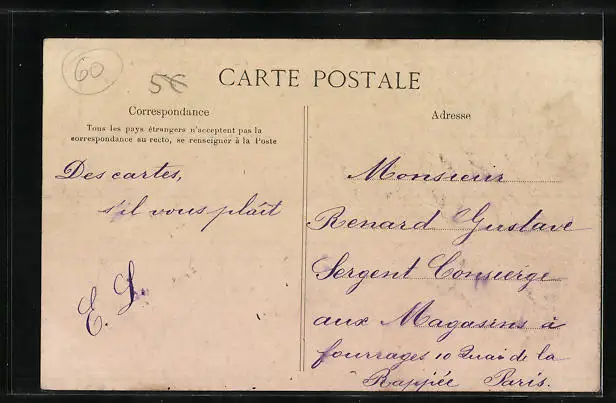 60
5€
CARTE POSTALE
Correspondance
Tous les pays étrangers n'acceptent pas la
correspondance au recto, se renseigner à la Poste
Des cartes,
s'il vous plaît
E. L.
Adresse
Monsieur
Renard Gustave
Sergent Consierge
aux Magasins à
fourrages 10 Quai de la
Rappée Paris.